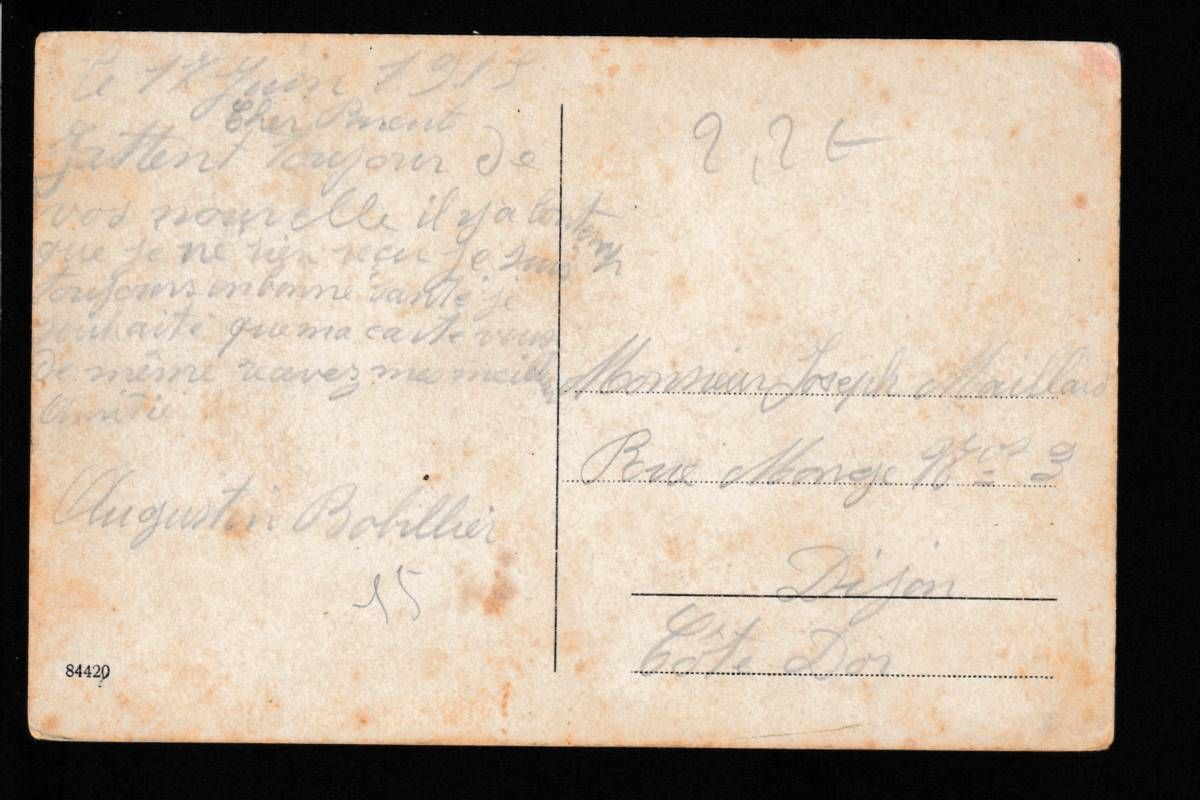 le 17 Juin 1915
Cher Parent
Jattent toujour de
vos nouvelle il y a lontemp
que je ne rien reçu je suis
toujours en bonne santé je
souhaite que ma carte vous
de même recevez ma meille
Amitié
Augustin Bobillier
15
84420
2,2 €
Monsieur Joseph Maillard
Rue Monge Nos 3
Dijon
Côte Dor